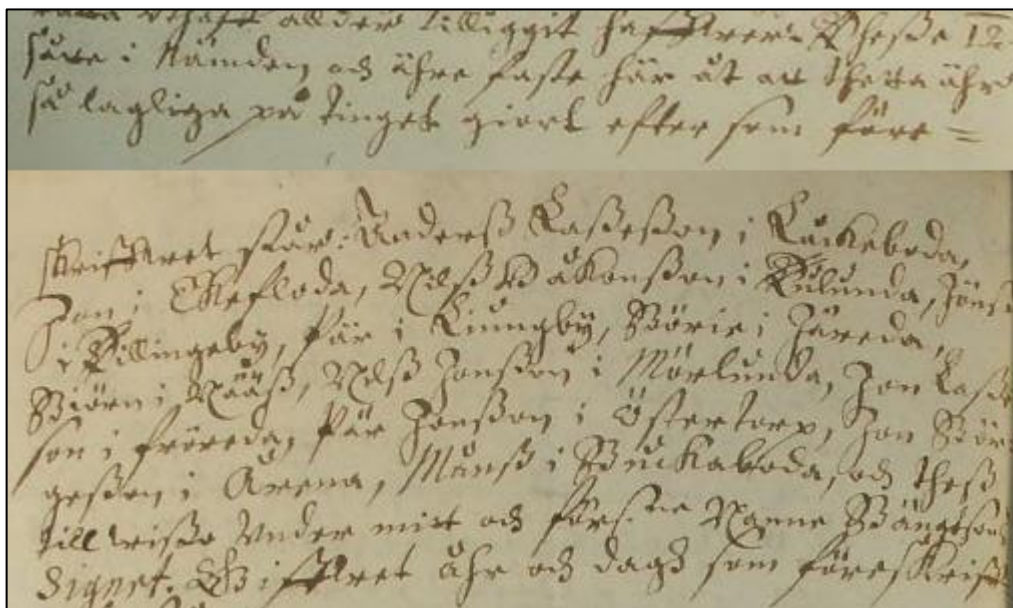 allder tilliggit haffwer. Thesse 12
såte i Nämden och ähre faste här åt at thetta ähr
så lagliga på tinget giort effter som före=
skriffwet står: Anderß Laßeßon i Luckeboda,
Jon i Ekefloda, Nilß Håkonßon i Kulunda, Jönß
i Killingeby, Pär i Liungby, Börie i Järeda,
Biörn i Näaß, Nilß Jonßon i Mörlunda, Jon Laße
son i fröreda, Pär Jonßon i Östertorp, Jon Bör
geßon i Arena, Månß i Buckaboda, och theß
till wißo under mitt och förs:ne Nanne Bängtsons
Signet. Giffwet åhr och dagh som föreskrifft